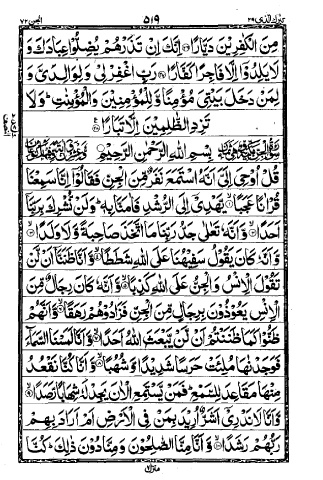 تبٰرك الذی ٢٩ ٥١٩ الجن ٧٢
مِنَ الْكٰفِرِيْنَ دَيَّارًا ۝ اِنَّكَ اِنْ تَذَرْهُمْ يُضِلُّوْا عِبَادَكَ وَ
لَا يَلِدُوْۤا اِلَّا فَاجِرًا كَفَّارًا ۝ رَبِّ اغْفِرْ لِيْ وَلِوَالِدَيَّ وَ
لِمَنْ دَخَلَ بَيْتِيَ مُؤْمِنًا وَّلِلْمُؤْمِنِيْنَ وَالْمُؤْمِنٰتِ ؕ وَلَا
تَزِدِ الظّٰلِمِيْنَ اِلَّا تَبَارًا ۝
بِسْمِ اللّٰهِ الرَّحْمٰنِ الرَّحِيْمِ
قُلْ اُوْحِيَ اِلَيَّ اَنَّهُ اسْتَمَعَ نَفَرٌ مِّنَ الْجِنِّ فَقَالُوْۤا اِنَّا سَمِعْنَا
قُرْاٰنًا عَجَبًا ۝ يَّهْدِيْۤ اِلَى الرُّشْدِ فَاٰمَنَّا بِهٖ ؕ وَلَنْ نُّشْرِكَ بِرَبِّنَاۤ
اَحَدًا ۝ وَّاَنَّهٗ تَعٰلٰى جَدُّ رَبِّنَا مَا اتَّخَذَ صَاحِبَةً وَّلَا وَلَدًا ۝
وَّاَنَّهٗ كَانَ يَقُوْلُ سَفِيْهُنَا عَلَى اللّٰهِ شَطَطًا ۝ وَّاَنَّا ظَنَنَّاۤ اَنْ لَّنْ
تَقُوْلَ الْاِنْسُ وَالْجِنُّ عَلَى اللّٰهِ كَذِبًا ۝ وَّاَنَّهٗ كَانَ رِجَالٌ مِّنَ
الْاِنْسِ يَعُوْذُوْنَ بِرِجَالٍ مِّنَ الْجِنِّ فَزَادُوْهُمْ رَهَقًا ۝ وَّاَنَّهُمْ
ظَنُّوْا كَمَا ظَنَنْتُمْ اَنْ لَّنْ يَّبْعَثَ اللّٰهُ اَحَدًا ۝ وَّاَنَّا لَمَسْنَا السَّمَآءَ
فَوَجَدْنٰهَا مُلِئَتْ حَرَسًا شَدِيْدًا وَّشُهُبًا ۝ وَّاَنَّا كُنَّا نَقْعُدُ
مِنْهَا مَقَاعِدَ لِلسَّمْعِ ؕ فَمَنْ يَّسْتَمِعِ الْاٰنَ يَجِدْ لَهٗ شِهَابًا رَّصَدًا ۝
وَّاَنَّا لَا نَدْرِيْۤ اَشَرٌّ اُرِيْدَ بِمَنْ فِي الْاَرْضِ اَمْ اَرَادَ بِهِمْ
رَبُّهُمْ رَشَدًا ۝ وَّاَنَّا مِنَّا الصّٰلِحُوْنَ وَمِنَّا دُوْنَ ذٰلِكَ ؕ كُنَّا